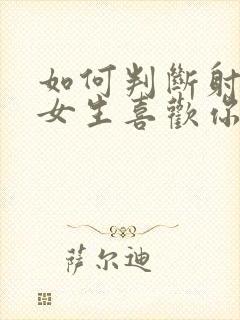 如何判斷射
女生喜歡你
萨尔迪